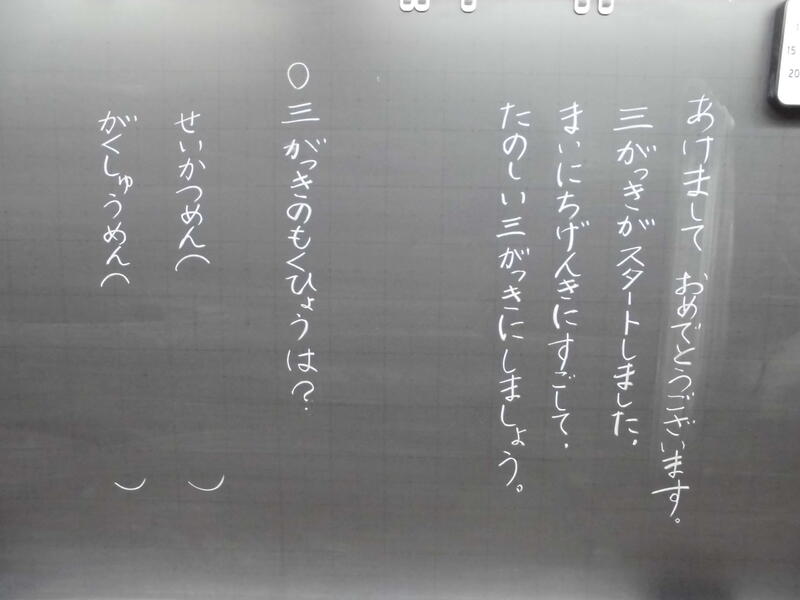 あけまして おめでとうございます。
三がっきがスタートしました。
まいにちげんきにすごして、
たのしい三がっきにしましょう。
○三がっきのもくひょうは?
せいかつめん( )
がくしゅうめん( )
15
20